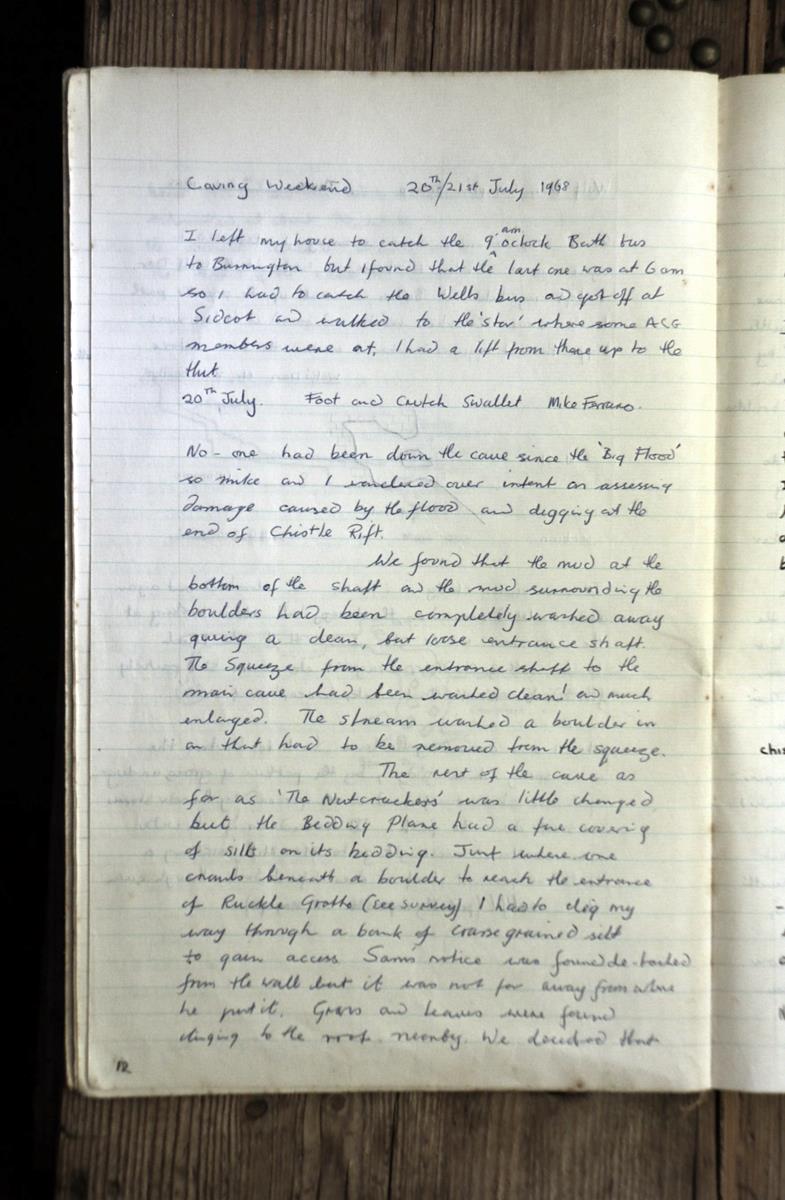 Caving Weekend 20th/21st July 1968
I left my house to catch the 9 am oclock Bath bus
to Burrington but I found that the last one was at 6 am
so I had to catch the Wells bus and get off at
Sidcot and walked to the 'star' where some ACG
members were at, I had a lift from there up to the
Hut.
20th July. Foot and Crutch Swallet Mike
No-one had been down the cave since the 'Big Flood'
so mike and I wandered over intent on assessing
Damage caused by the flood and digging at the
end of Chistle Rift.
We found that the mud at the
bottom of the shaft and the mud surrounding the
boulders had been completely washed away
giving a clean, but loose entrance shaft.
The Squeeze from the entrance shaft to the
main cave had been washed clean! and much
enlarged. The stream washed a boulder in
and that had to be removed from the squeeze.
The rest of the cave as
far as 'The Nutcrackers' was little changed
but the Bedding Plane had a fine covering
of silts on its bedding. Just where one
crawls beneath a boulder to reach the entrance
of Ruckle Grotto (see survey) I had to dig my
way through a bank of coarse grained silt
to gain access Sam's notice was found de-tached
from the wall but it was not far away from where
he put it. Grass and leaves were found
clinging to the roof nearby. We decided that
12
chis